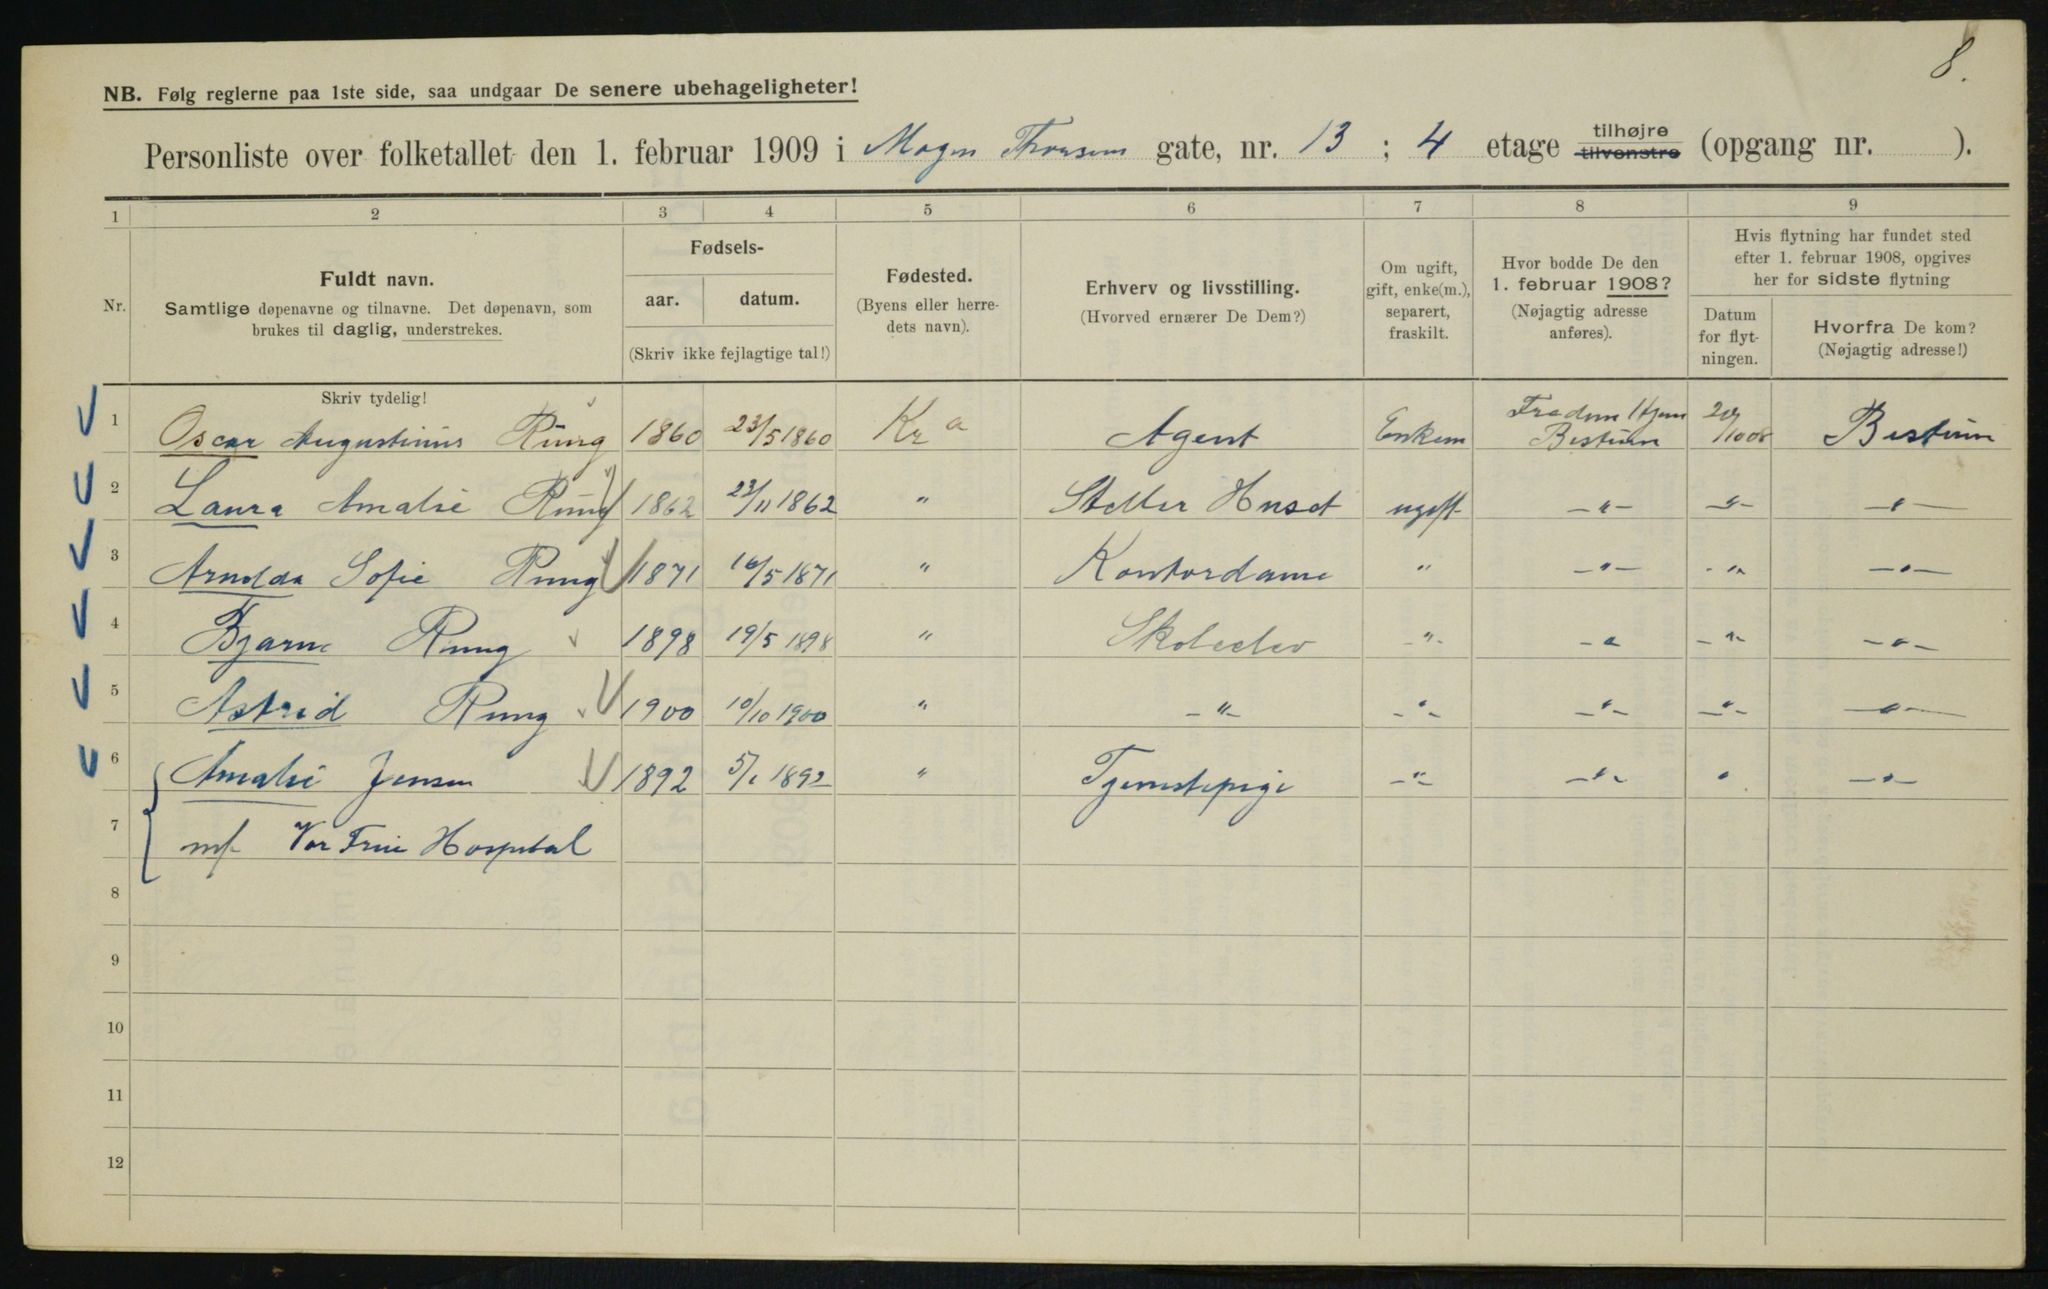 8.
NB. Følg reglerne paa 1ste side, saa undgaar De senere ubehageligheter!
Personliste over folketallet den 1. februar 1909 i Mogen Thorsens gate, nr. 13 ; 4 etage tilhøjre tilvenstre (opgang nr. ).
1 2 3 4 5 6 7 8 9
Nr.
Fuldt navn.
Samtlige døpenavne og tilnavne. Det døpenavn, som
brukes til daglig, understrekes.
Skriv tydelig!
Fødsels-
aar. datum.
(Skriv ikke fejlagtige tal!)
Fødested.
(Byens eller herre-
dets navn).
Erhverv og livsstilling.
(Hvorved ernærer De Dem?)
Om ugift,
gift, enke(m.),
separert,
fraskilt.
Hvor bodde De den
1. februar 1908?
(Nøjagtig adresse
anføres).
Hvis flytning har fundet sted
efter 1. februar 1908, opgives
her for sidste flytning
Datum
for flyt-
ningen.
Hvorfra De kom?
(Nøjagtig adresse!)
1 Oscar Augustinus Rung 1860 23/5 1860 Kra Agent Enkem Bestum Bestum
2 Laura Amalie Rung 1862 23/11 1862 " Steller Huset ugift -"- -"- -"-
3 Arnolda Sofie Rung 1871 16/5 1871 " Kontordame " -"- -"- -"-
4 Bjarne Rung 1898 19/5 1898 " Skoleelev -"- -"- -"- -"-
5 Astrid Rung 1900 10/10 1900 " -"- -"- -"- -"- -"-
6 Amalie Jensen 1892 5/1 1892 " Tjenestepige -"- -"- " -"-
7 mf Vor Frue Hospital
8
9
10
11
12